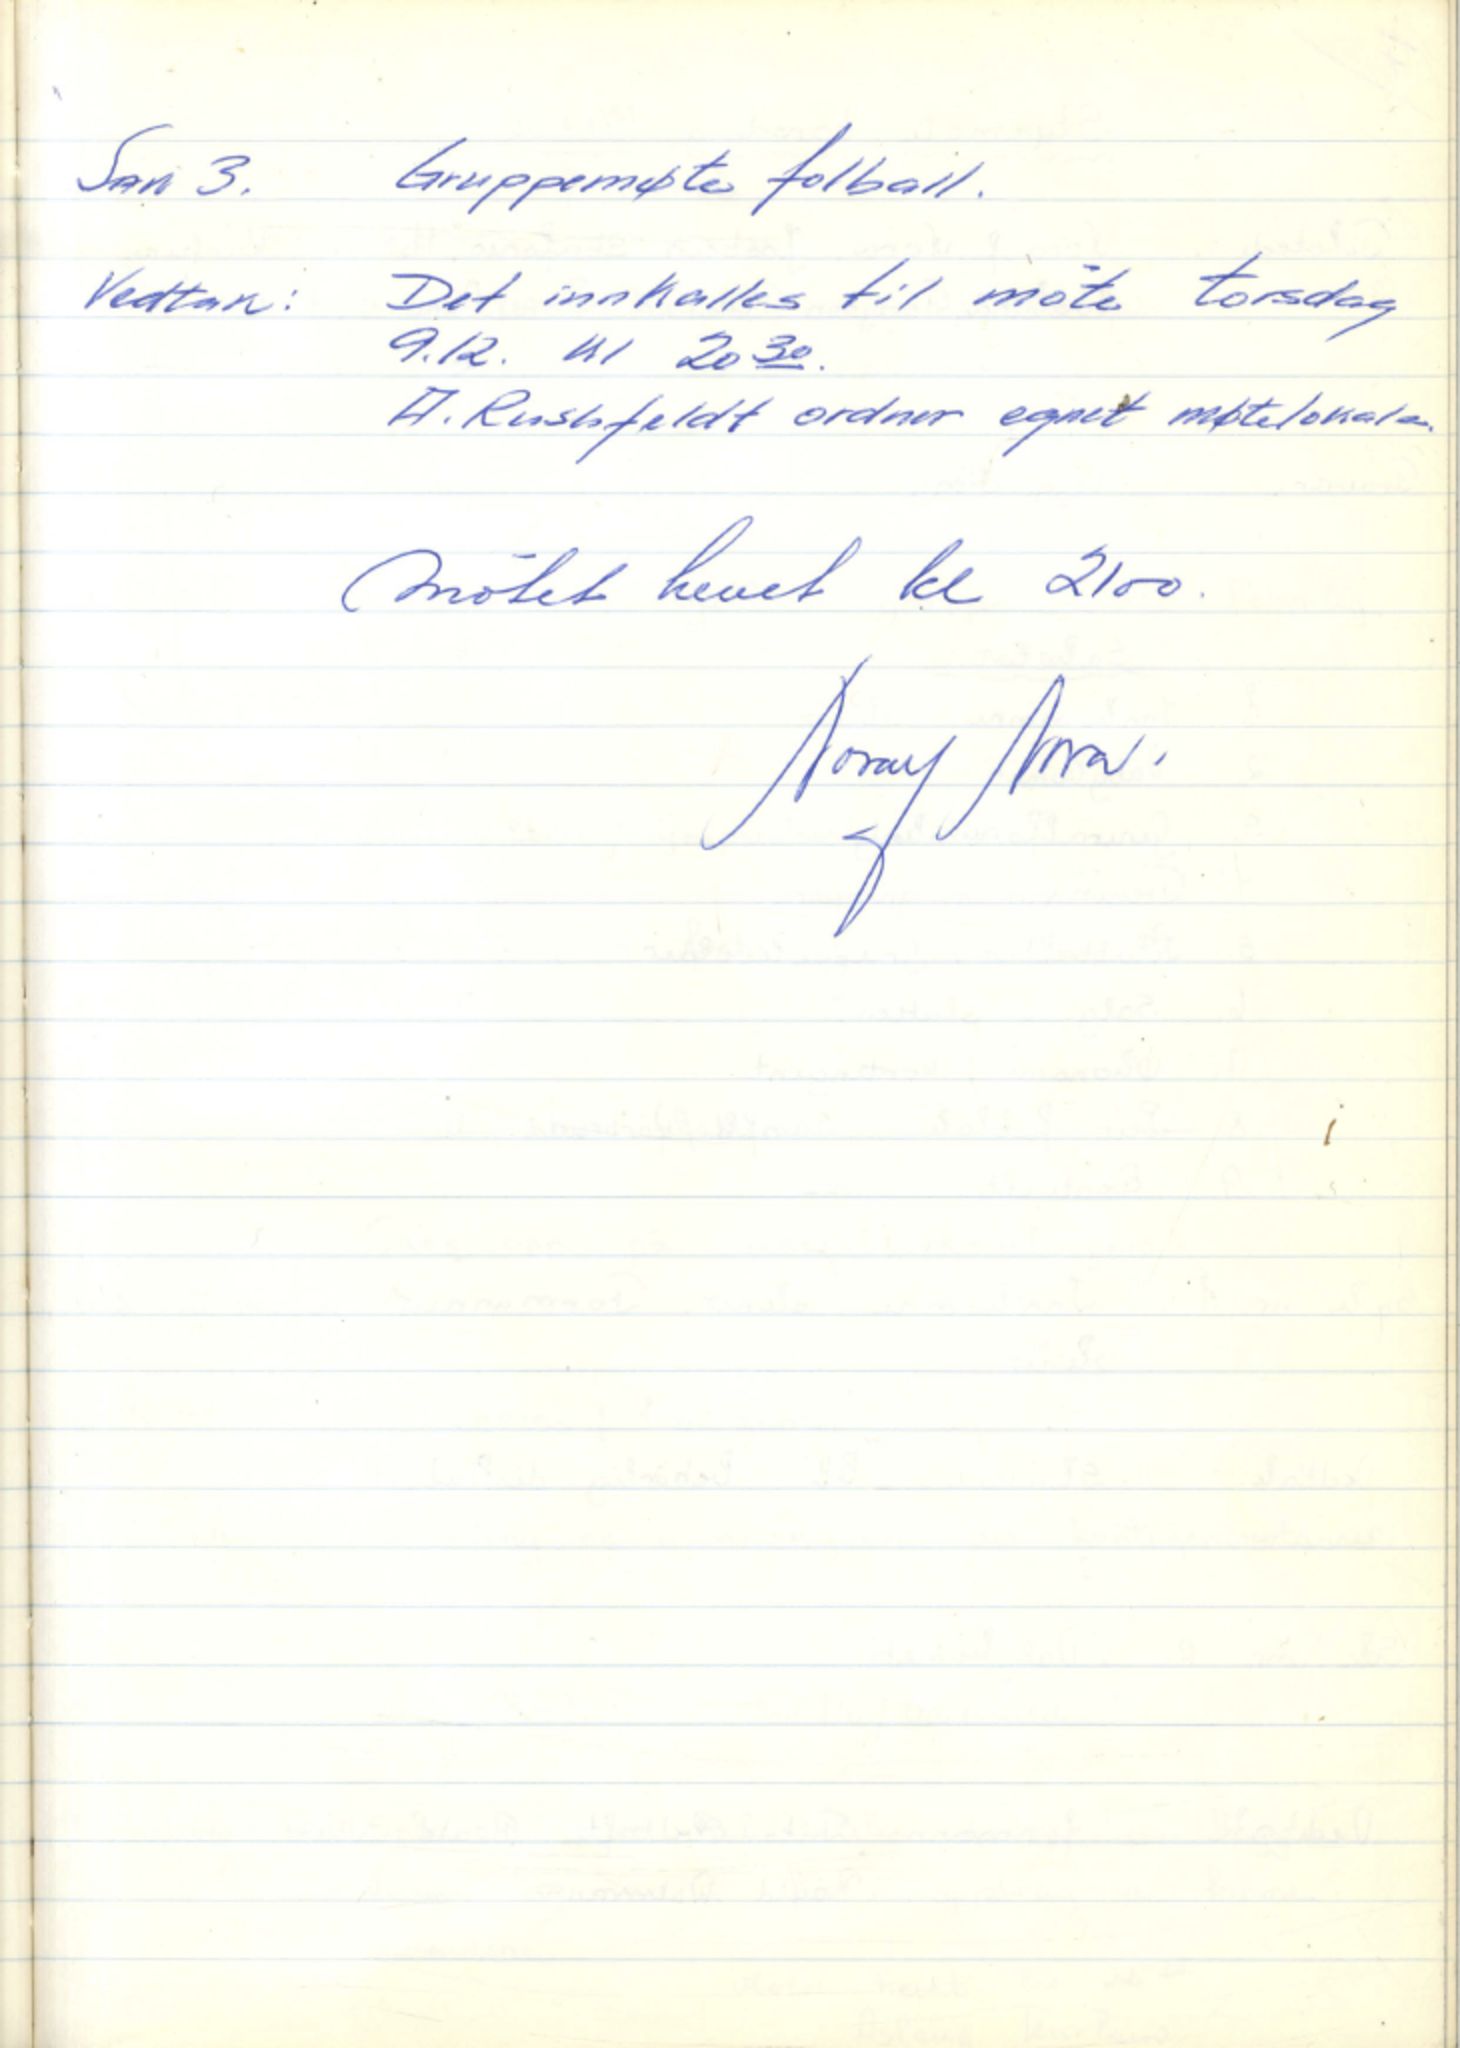 Sak 3. Gruppemøte fotball.
Vedtak: Det innkalles til møte torsdag
9.12. kl 20 30.
A. Rushfeldt ordner egnet møtelokale.
Møtet hevet kl 2100.